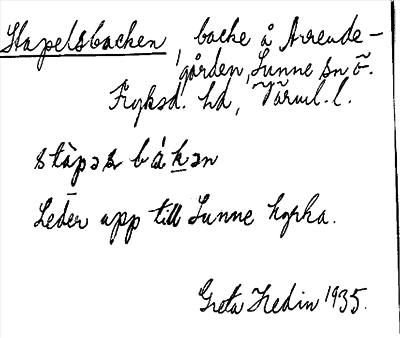 Stapelsbacken, backe å Arrende-
gården, Sunne sn Ö.
Fryksd. hd, Värml. l.
stàpəs bákən
Leder upp till Sunne kyrka.
Greta Hedin 1935.